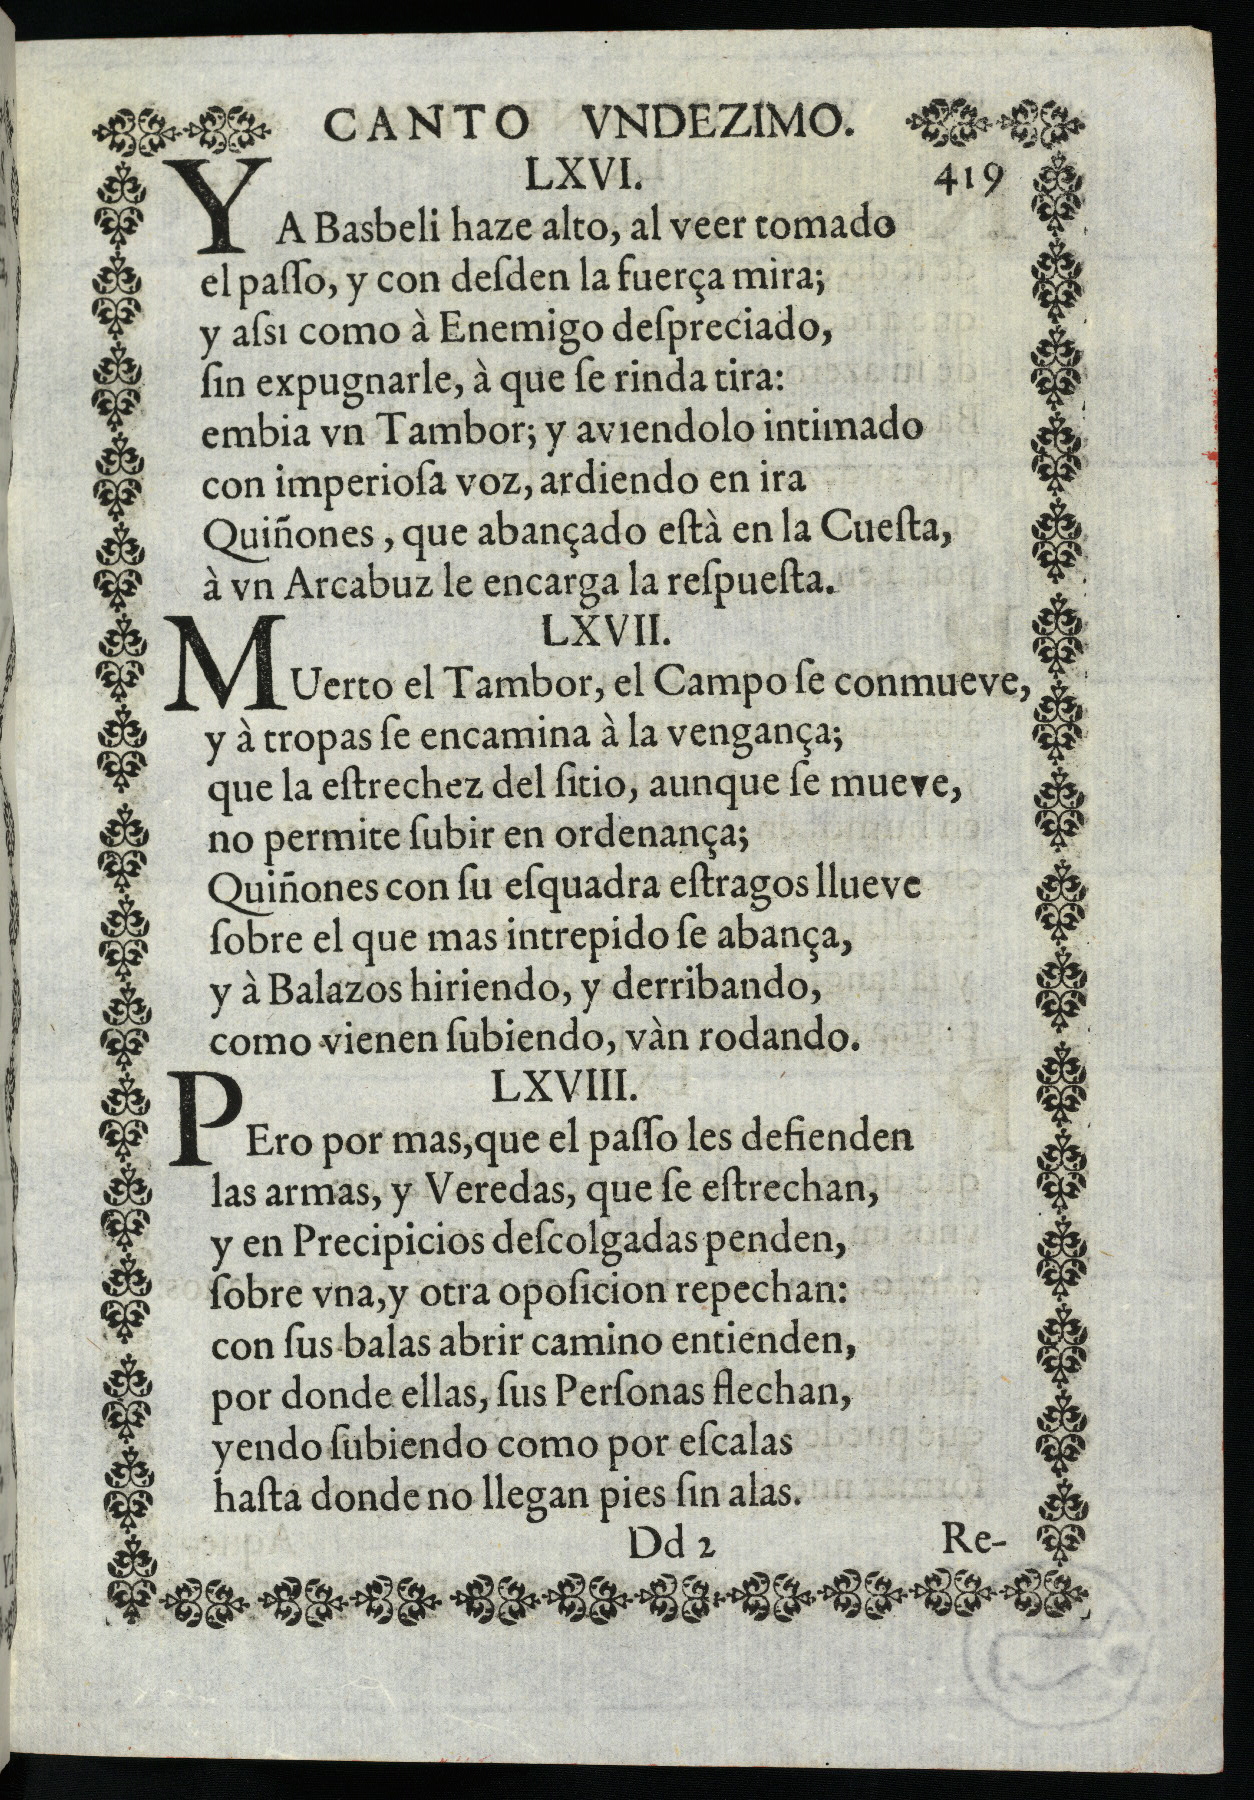 CANTO VNDEZIMO.
LXVI. 419
YA Basbeli haze alto, al veer tomado
el paſſo, y con deſden la fuerça mira;
y aſsi como à Enemigo deſpreciado,
ſin expugnarle, à que ſe rinda tira:
embia vn Tambor; y aviendolo intimado
con imperioſa voz, ardiendo en ira
Quiñones, que abançado eſtà en la Cueſta,
à vn Arcabuz le encarga la reſpueſta.
LXVII.
MUerto el Tambor, el Campo ſe conmueve,
y à tropas ſe encamina à la vengança;
que la eſtrechez del ſitio, aunque ſe mueve,
no permite ſubir en ordenança;
Quiñones con ſu eſquadra eſtragos llueve
ſobre el que mas intrepido ſe abança,
y à Balazos hiriendo, y derribando,
como vienen ſubiendo, vàn rodando.
LXVIII.
PEro por mas,que el paſſo les defienden
las armas, y Veredas, que ſe eſtrechan,
y en Precipicios deſcolgadas penden,
ſobre vna,y otra opoſicion repechan:
con ſus balas abrir camino entienden,
por donde ellas, ſus Perſonas flechan,
yendo ſubiendo como por eſcalas
haſta donde no llegan pies ſin alas.
Dd 2 Re-